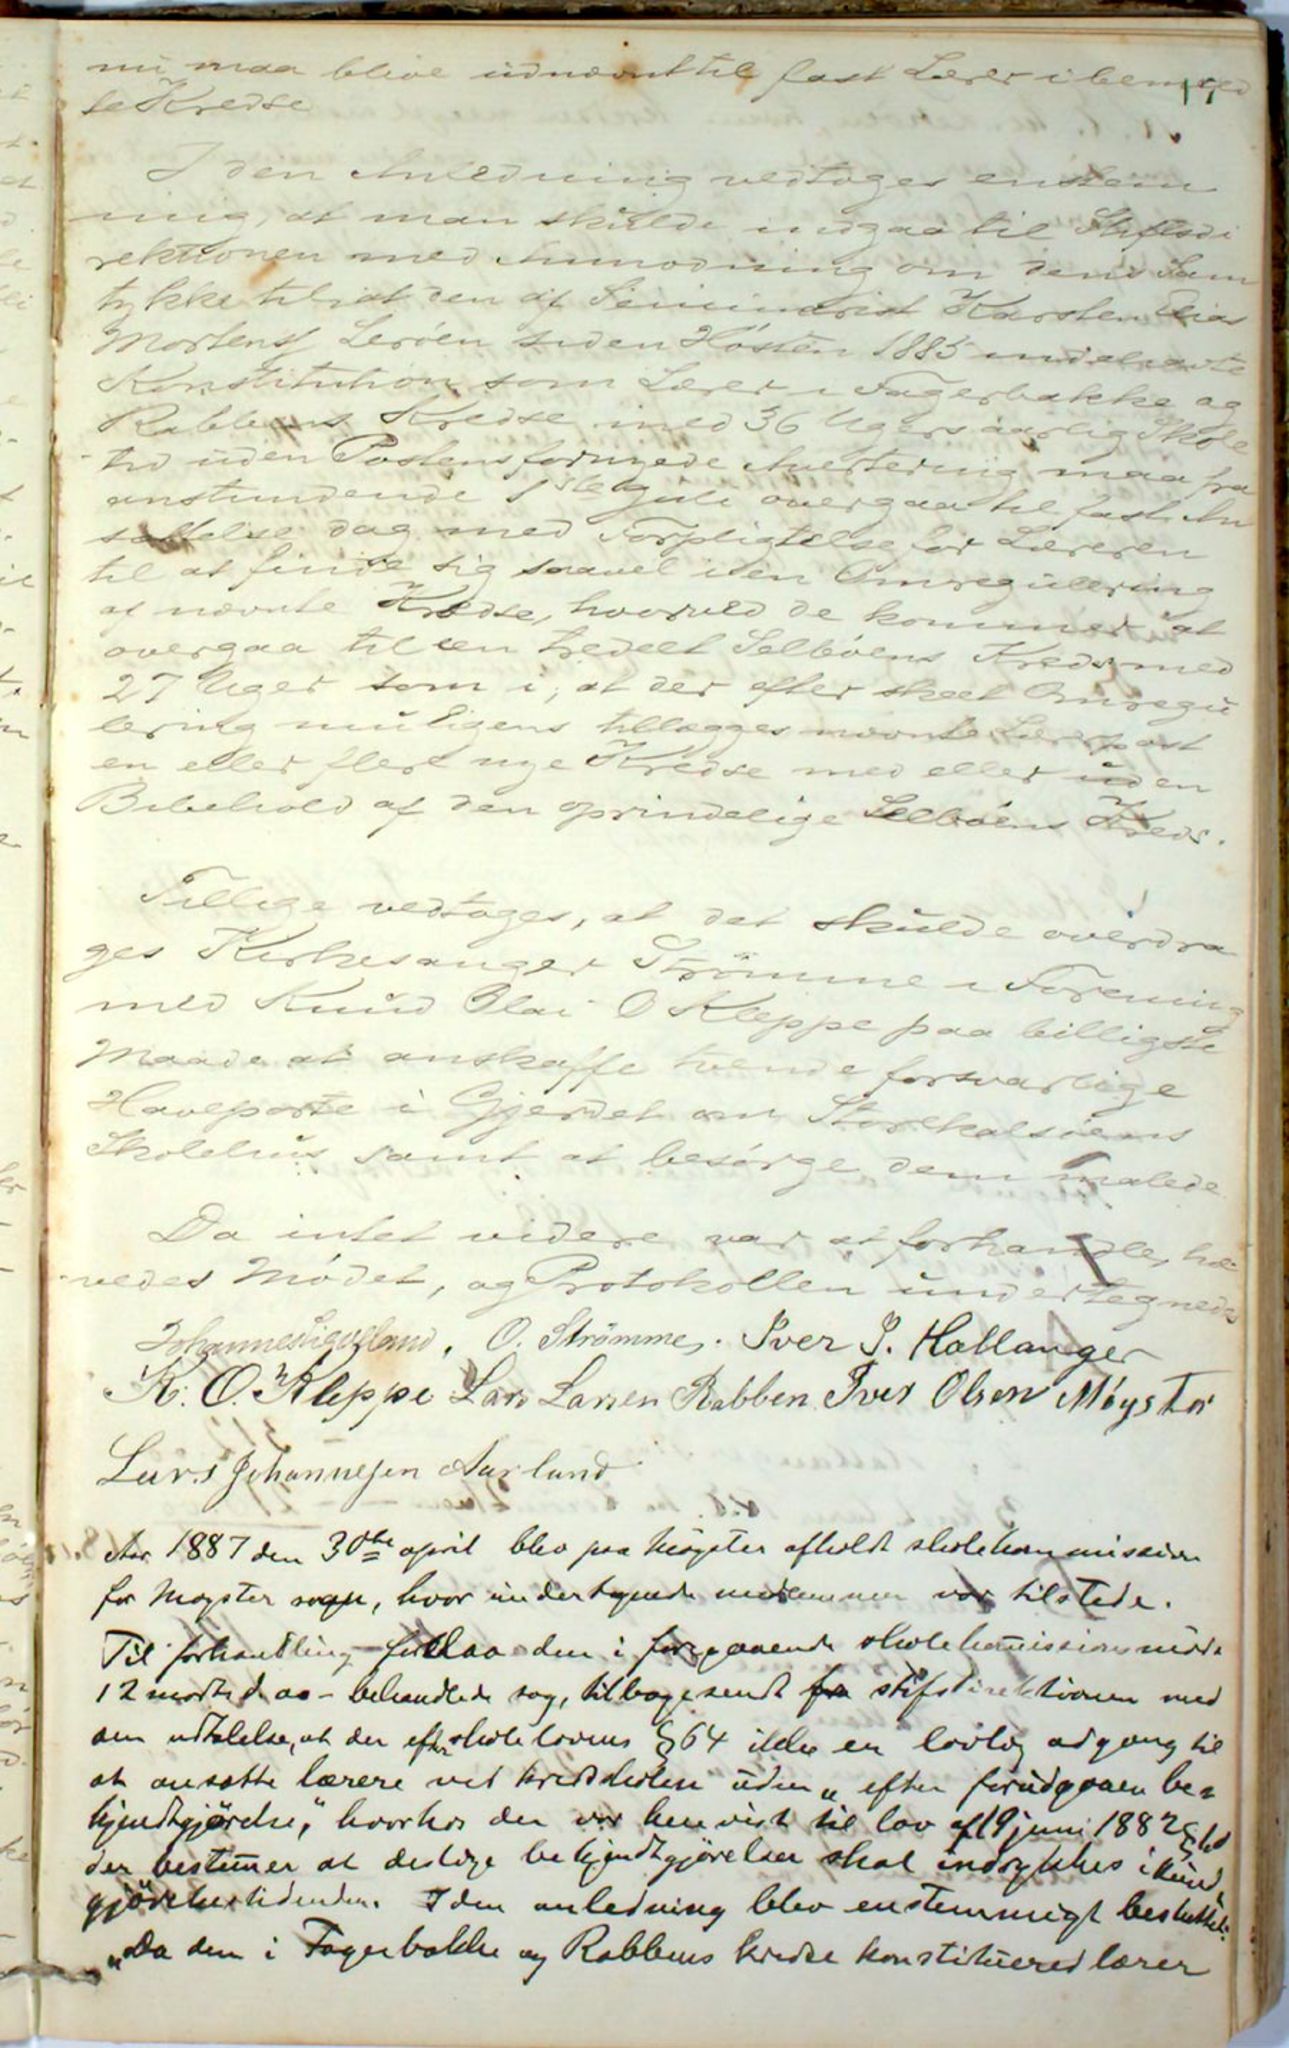 17
nu maa blive udnævnt til fast Lærer i bemeld
te Kredse
I den Anledning vedtoges enstem
mig, at man skulde indgaa til Stiftsdi
rektionen med Anmodning om dens Sam
tykke til at den af Seminarist Karsten Elias
Mortens Lerøen siden Høsten 1885 indehavte
Konstitution som Lærer i Fagerbakke og
Rabbens Kredse med 36 Ugers aarlig Skole
tid uden Postens fornyede Avertering maa fra
anstundende 1ste Juli overgaa til fast An
sættelse dog med Forpligtelse for Læreren
til at finde sig saavel i en Omregulering
af nævnte Kredse, hvorved de kommer at
overgaa til en tredelt Selbøens Kreds med
27 Uger som i, at der efter skeet Omregu
lering muligens tillægges nævnte Lærerpost
en eller flere nye Kredse med eller uden
Bibehold af den oprindelige Selbøens Kreds.
Tillige vedtoges, at det skulde overdra
ges Kirkesanger Strømme i Forening
med Knud Olai O Kleppe paa billigste
Maade at anskaffe tvende forsvarlige
Haveporte i Gjerdet om Storekalsøens
Skolehus samt at besørge dem malede
Da intet videre var at forhandle, hæ
vedes Mødet, og Protokollen undertegnedes
Johannes Sigvelland, O. Strömme. Iver J. Hallanger
K. O. Kleppe Lars Larsen Rabben Iver Olsen Møgster
Lars Johannesen Aurlund
Aar 1887 den 30te april blev paa Møgster afholdt skolekommission
for Møgster sogn, hvor undertegnede medlemmer var tilstede.
Til forhandling forelaa den i foregaaende skolekommissionsmøde
12 marts d. aa - behandlede sag, tilbagesendt fra stiftsdirektionen med
den udtalelse, at der efter skolelovens § 64 ikke er lovlig adgang til
at ansætte lærere ved kredsskolen uden "efter forudgaaen be=
kjendtgjørelse," hvorhos der var henvist til lov af 19 juni 1882
der bestemmer at deslige bekjendtgjørelser skal indrykkes i Kund=
gjørelsestidenden. I den anledning blev enstemmigt besluttet:
"Da den i Fagerbakke og Rabbens kredse konstituered lærer